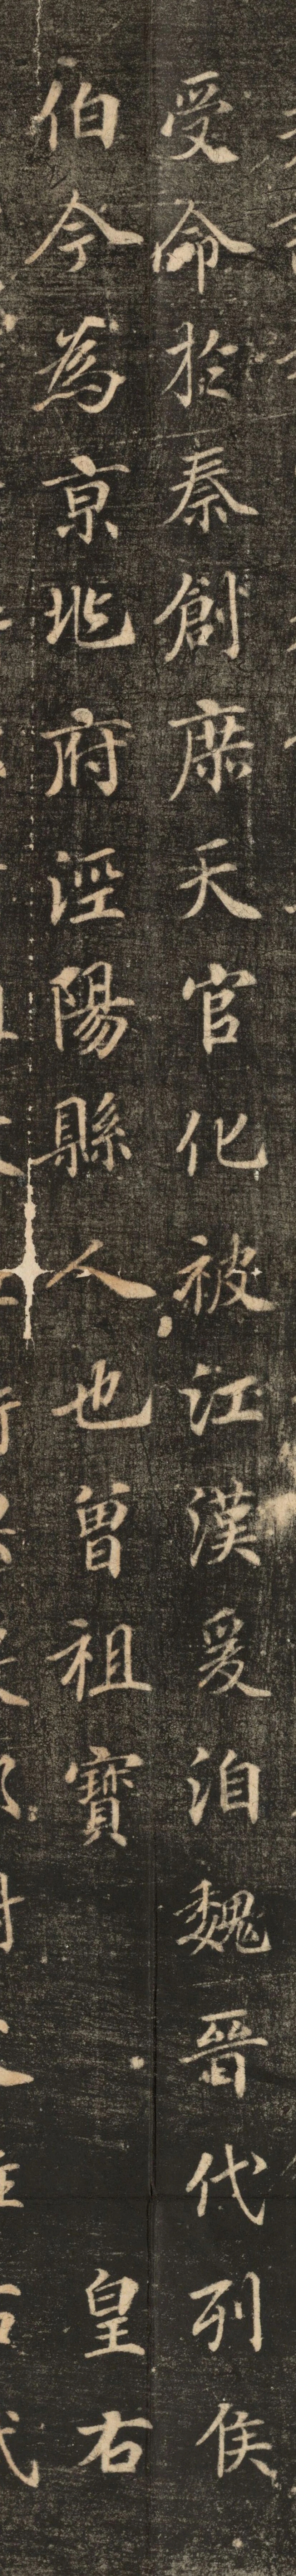 受命於秦創庶天官化被江漢爰洎魏晉代列侯
伯今為京兆府涇陽縣人也曾祖寶皇右